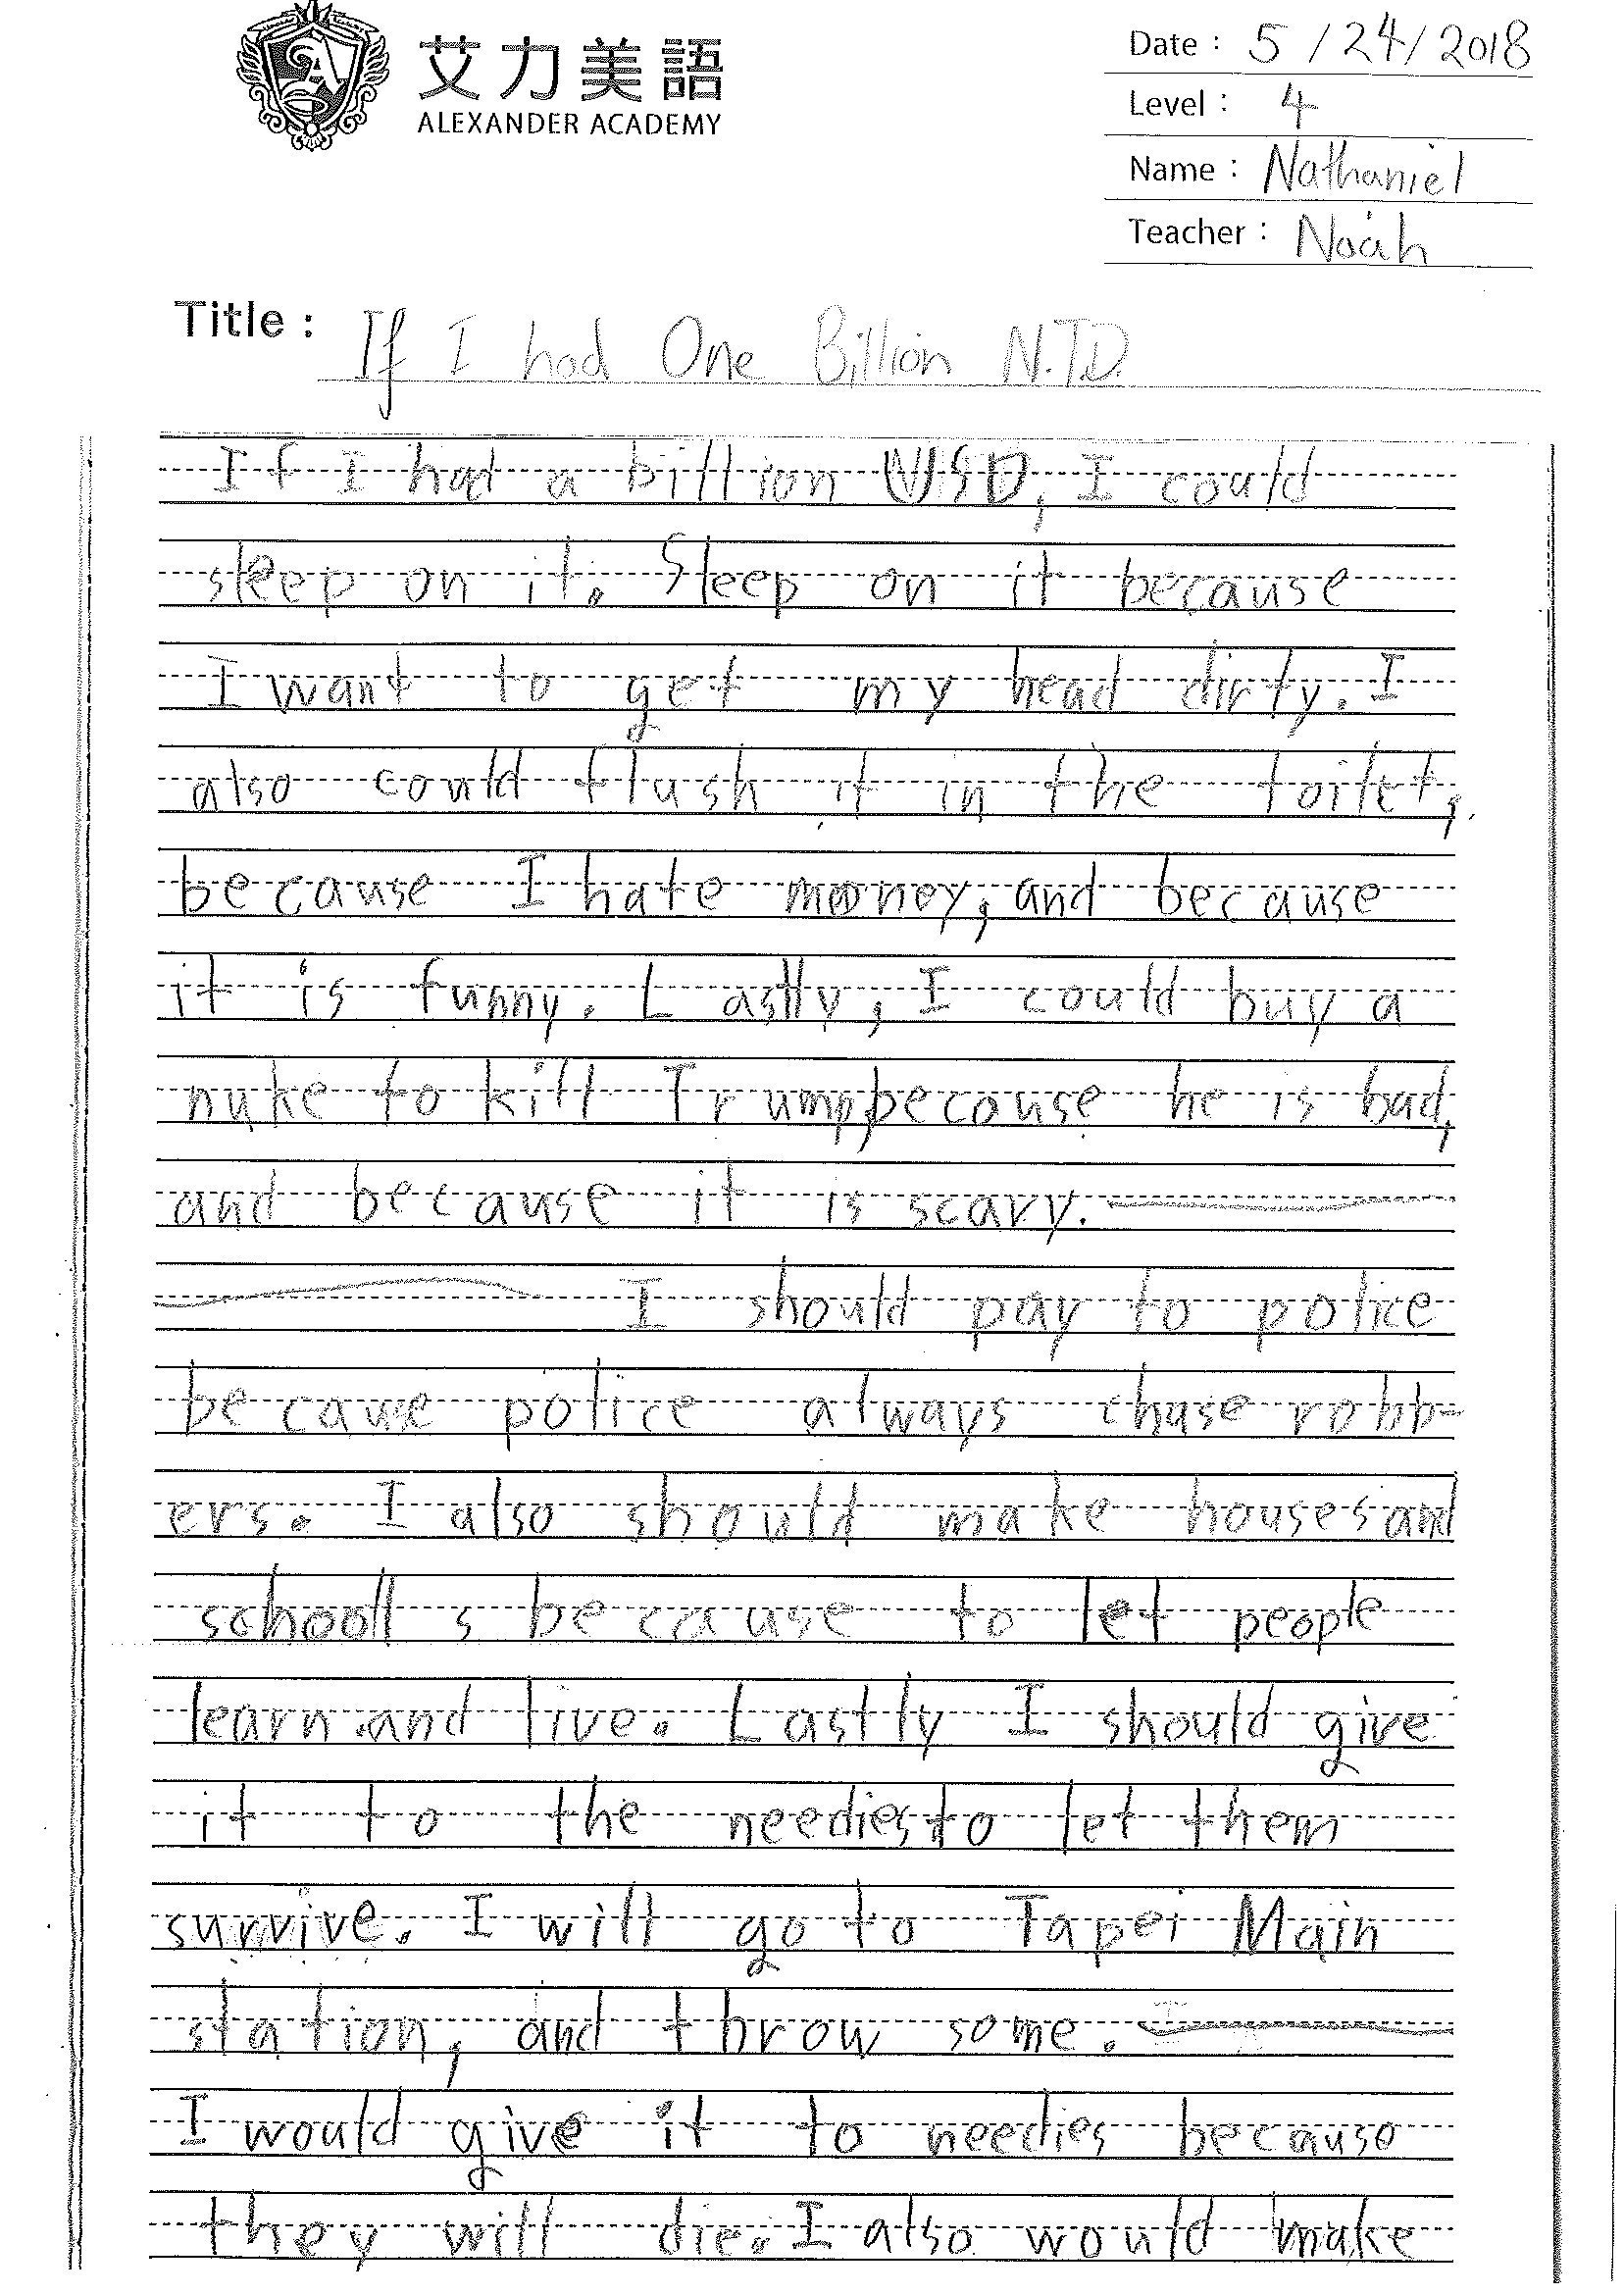 艾力美語
ALEXANDER ACADEMY
Date : 5 / 24 / 2018
Level : 4
Name : Nathaniel
Teacher : Noah
Title : If I had One Billion N.T.D.
If I had a billion USD, I could
sleep on it. Sleep on it because
I want to get my head dirty. I
also could flush it in the toilet,
because I hate money, and because
it is funny. Lastly, I could buy a
nuke to kill Trump, because he is bad,
and because it is scary.
I should pay to police
because police always chase robb-
ers. I also should make houses and
schools because to let people
learn and live. Lastly I should give
it to the needies to let them
survive. I will go to Tapei Main
station, and throw some.
I would give it to needies because
they will die. I also would make